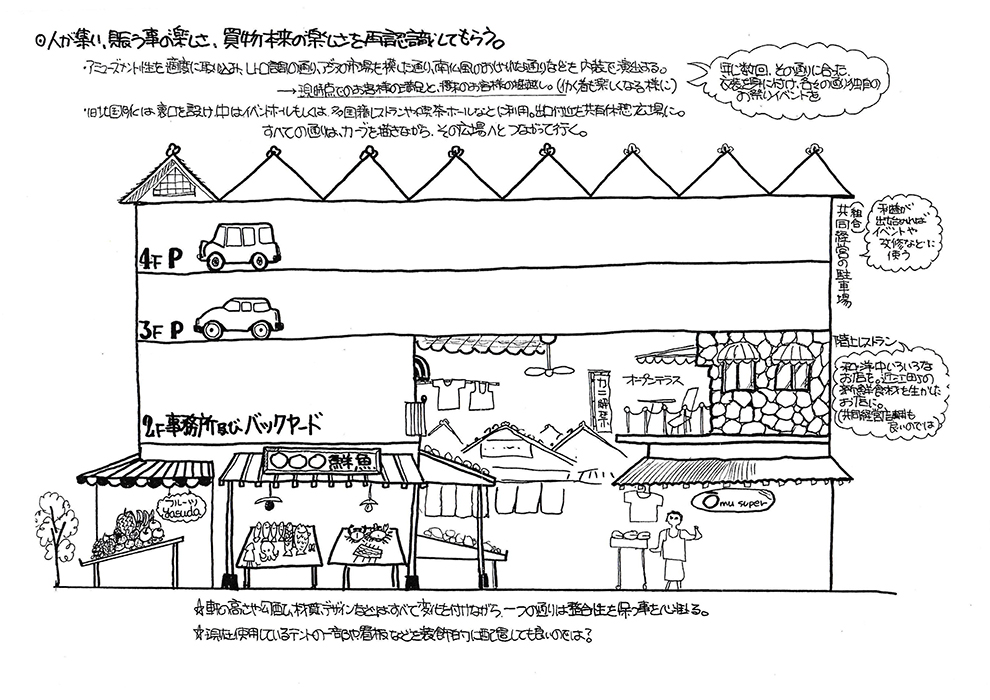 ◎人が集い、賑う事の楽しさ、買物本来の楽しさを再認識してもらう。
・アミューズメント性を適度に取り込み、レトロ調の通り、アジア市場を模した通り、南仏風のおしゃれな通りなどを内装で演出する。
→現時点でのお客様の満足と、将来のお客様の掘起し。(働く者も楽しくなる様に)
には裏口を設け、中はイベントホールもしくは、多国籍レストランや喫茶ホールなどに利用。出口付近を共有休憩広場に。
すべての通りは、カーブを描きながら、その広場へとつながって行く。
年に数回、その通りに合った
衣装を身に付け、各々の通り独自の
お祭りイベントを
4F P
3F P
2F 事務所及び バックヤード
組合
共同経営の駐車場
利益が
出始めれば
イベントや
改修などに
使う
階上レストラン
和・洋・中いろいろな
お店を。近江町の
新鮮食材を生かした
お店に。
(共同経営店舗も
良いのでは
オープンテラス
カニ解禁
〇〇〇鮮魚
フルーツ
Yasuda
Omu super
☆軒の高さや 材質、デザインなどはすべて変化を付けながら、一つの通りは整合性を保つ事を心掛る。
☆現在使用しているテントの一部や看板などを装飾的に配置しても良いのでは?